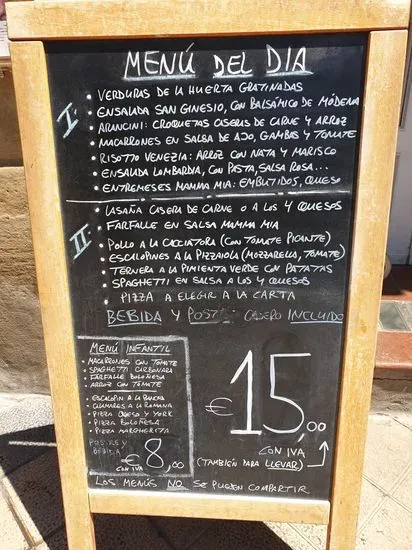 MENÚ DEL DIA
I:
• VERDURAS DE LA HUERTA GRATINADAS
• ENSALADA SAN GINESIO, CON BALSÁMICO DE MÓDENA
• ARANCINI: CROQUETAS CASERAS DE CARNE Y ARROZ
• MACARRONES EN SALSA DE AJO, GAMBAS Y TOMATE
• RISOTTO VENEZIA: ARROZ CON NATA Y MARISCO
• ENSALADA LOMBARDIA, CON PASTA, SALSA ROSA...
• ENTREMESES MAMMA MIA: EMBUTIDOS, QUESO
II:
• LASAÑA CASERA DE CARNE O A LOS 4 QUESOS
• FARFALLE EN SALSA MAMMA MIA
• POLLO A LA CACCIATORA (CON TOMATE PICANTE)
• ESCALOPINES A LA PIZZAIOLA (MOZZARELLA, TOMATE)
• TERNERA A LA PIMIENTA VERDE CON PATATAS
• SPAGHETTI EN SALSA A LOS 4 QUESOS
PIZZA A ELEGIR A LA CARTA
BEBIDA Y POSTRE CASERO INCLUIDO
MENÚ INFANTIL
• MACARRONES CON TOMATE
• SPAGHETTI CARBONARA
• FARFALLE BOLOÑESA
• ARROZ CON TOMATE
• ESCALOPIN A LA
• CALAMARES A LA ROMANA
• PIZZA QUESO Y YORK
• PIZZA BOLOÑESA
• PIZZA MARGHERITA
POSTRE Y
BEBIDA
€ 8,00
CON IVA
€ 15,00
CON IVA
(TAMBIÉN PARA LLEVAR)
LOS MENÚS NO SE PUEDEN COMPARTIR